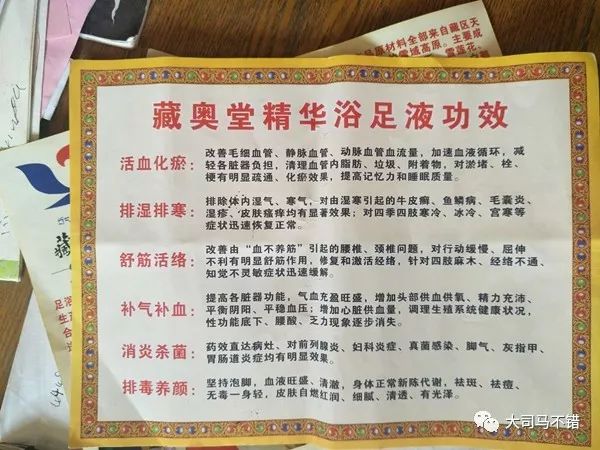 品原材料全部来自藏区天
雪域高原。主要成
雪莲花、
藏奥堂精华浴足液功效
活血化瘀：
改善毛细血管、静脉血管、动脉血管血流量，加速血液循环，减
轻各脏器负担，清理血管内脂肪、垃圾、附着物，对淤堵、栓、
梗有明显疏通、化瘀效果，提高记忆力和睡眠质量。
排湿排寒：
排除体内湿气、寒气，对由湿寒引起的牛皮癣、鱼鳞病、毛囊炎、
湿疹、皮肤瘙痒均有显著效果；对四季四肢寒冷、冰冷、宫寒等
症状迅速恢复正常。
舒筋活络：
改善由“血不养筋”引起的腰椎、颈椎问题，对行动缓慢、屈伸
不利有明显舒筋作用，修复和激活经络，针对四肢麻木、经络不通、
知觉不灵敏症状迅速缓解。
补气补血：
提高各脏器功能，气血充盈旺盛，增加头部供血供氧、精力充沛、
平衡阴阳、平稳血压；增加心脏供血量，调理生殖系统健康状况，
性功能底下、腰酸、乏力现象逐步消失。
消炎杀菌：
药效直达病灶、对前列腺炎、妇科炎症、真菌感染、脚气、灰指甲、
胃肠道炎症均有明显效果。
排毒养颜：
坚持泡脚，血液旺盛、清澈，身体正常新陈代谢，祛斑、祛痘、
无毒一身轻，皮肤自然红润、细腻、清透、有光泽。
藏
足液
生产
合
大司马不错